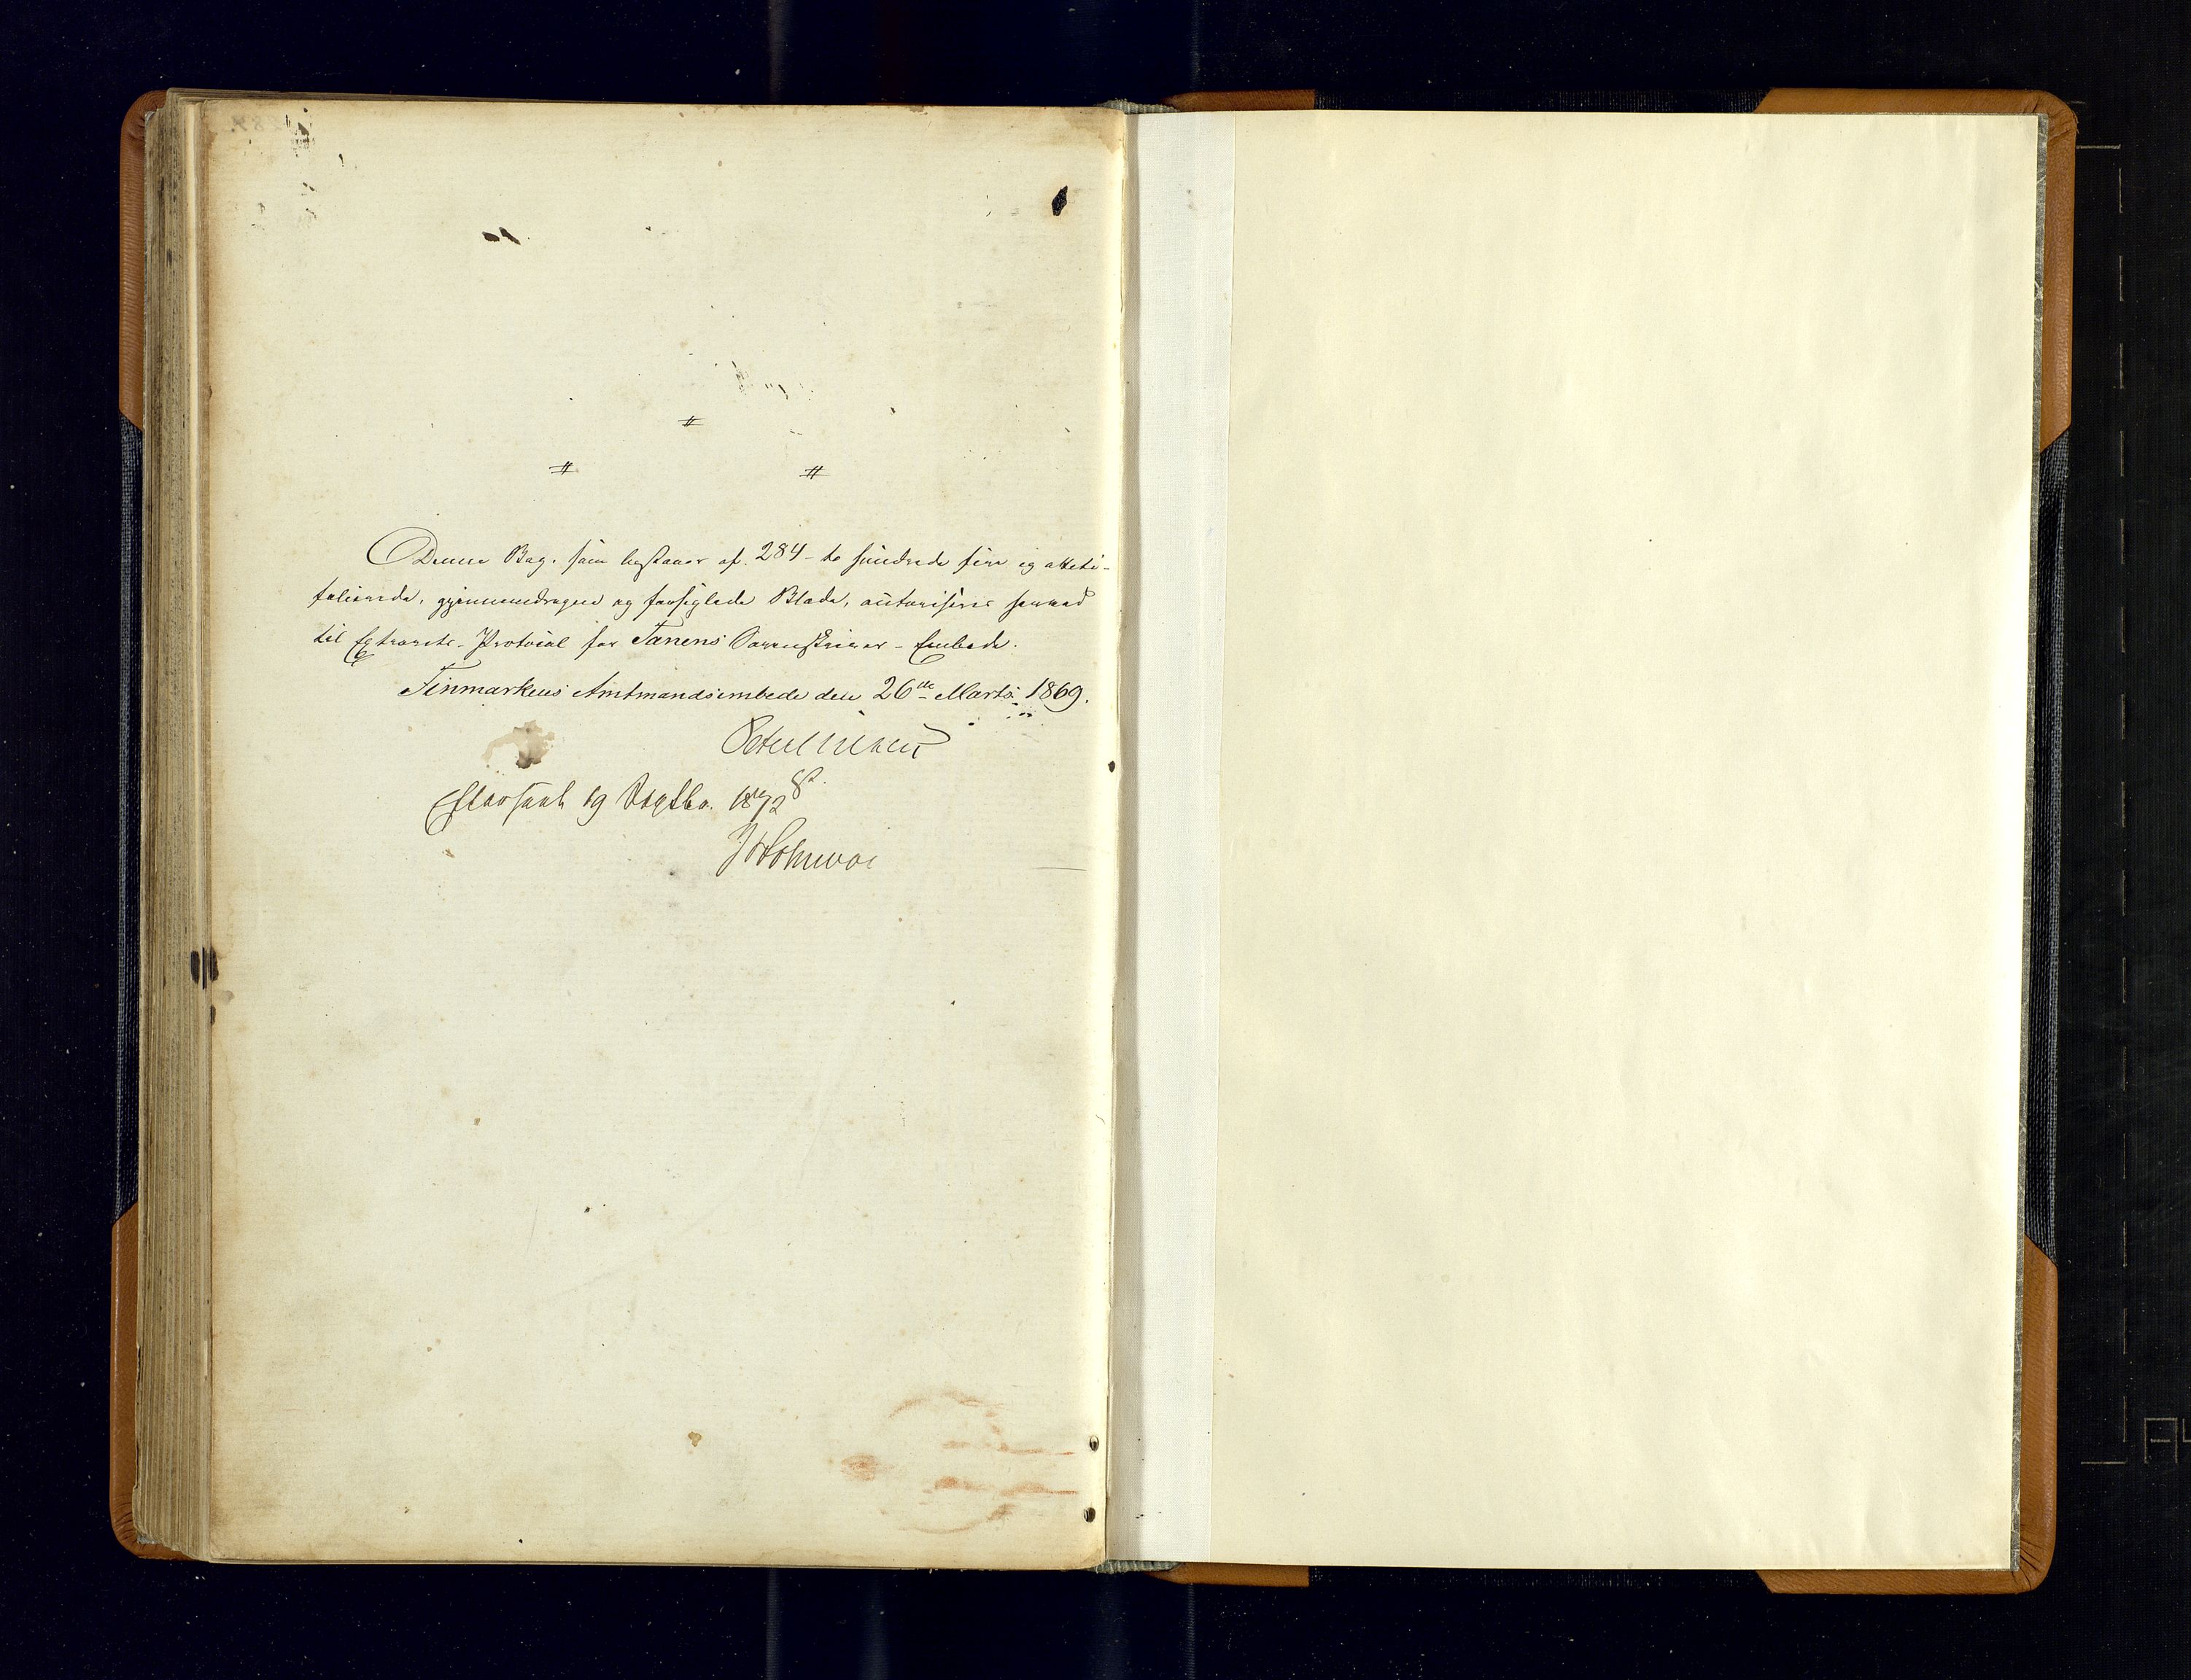 Denne Bog, som bestaaer af 284 - to hundrede fire og otteti -
folierede, gjennemdragne og forseglede Blade, autoriseres herved
til Extrarets-Protocol for Tanens Sorenskriver-Embede.
Finmarkens Amtmandsembede den 26de Marts 1869.
Efterseet 19 Septbr. 1872